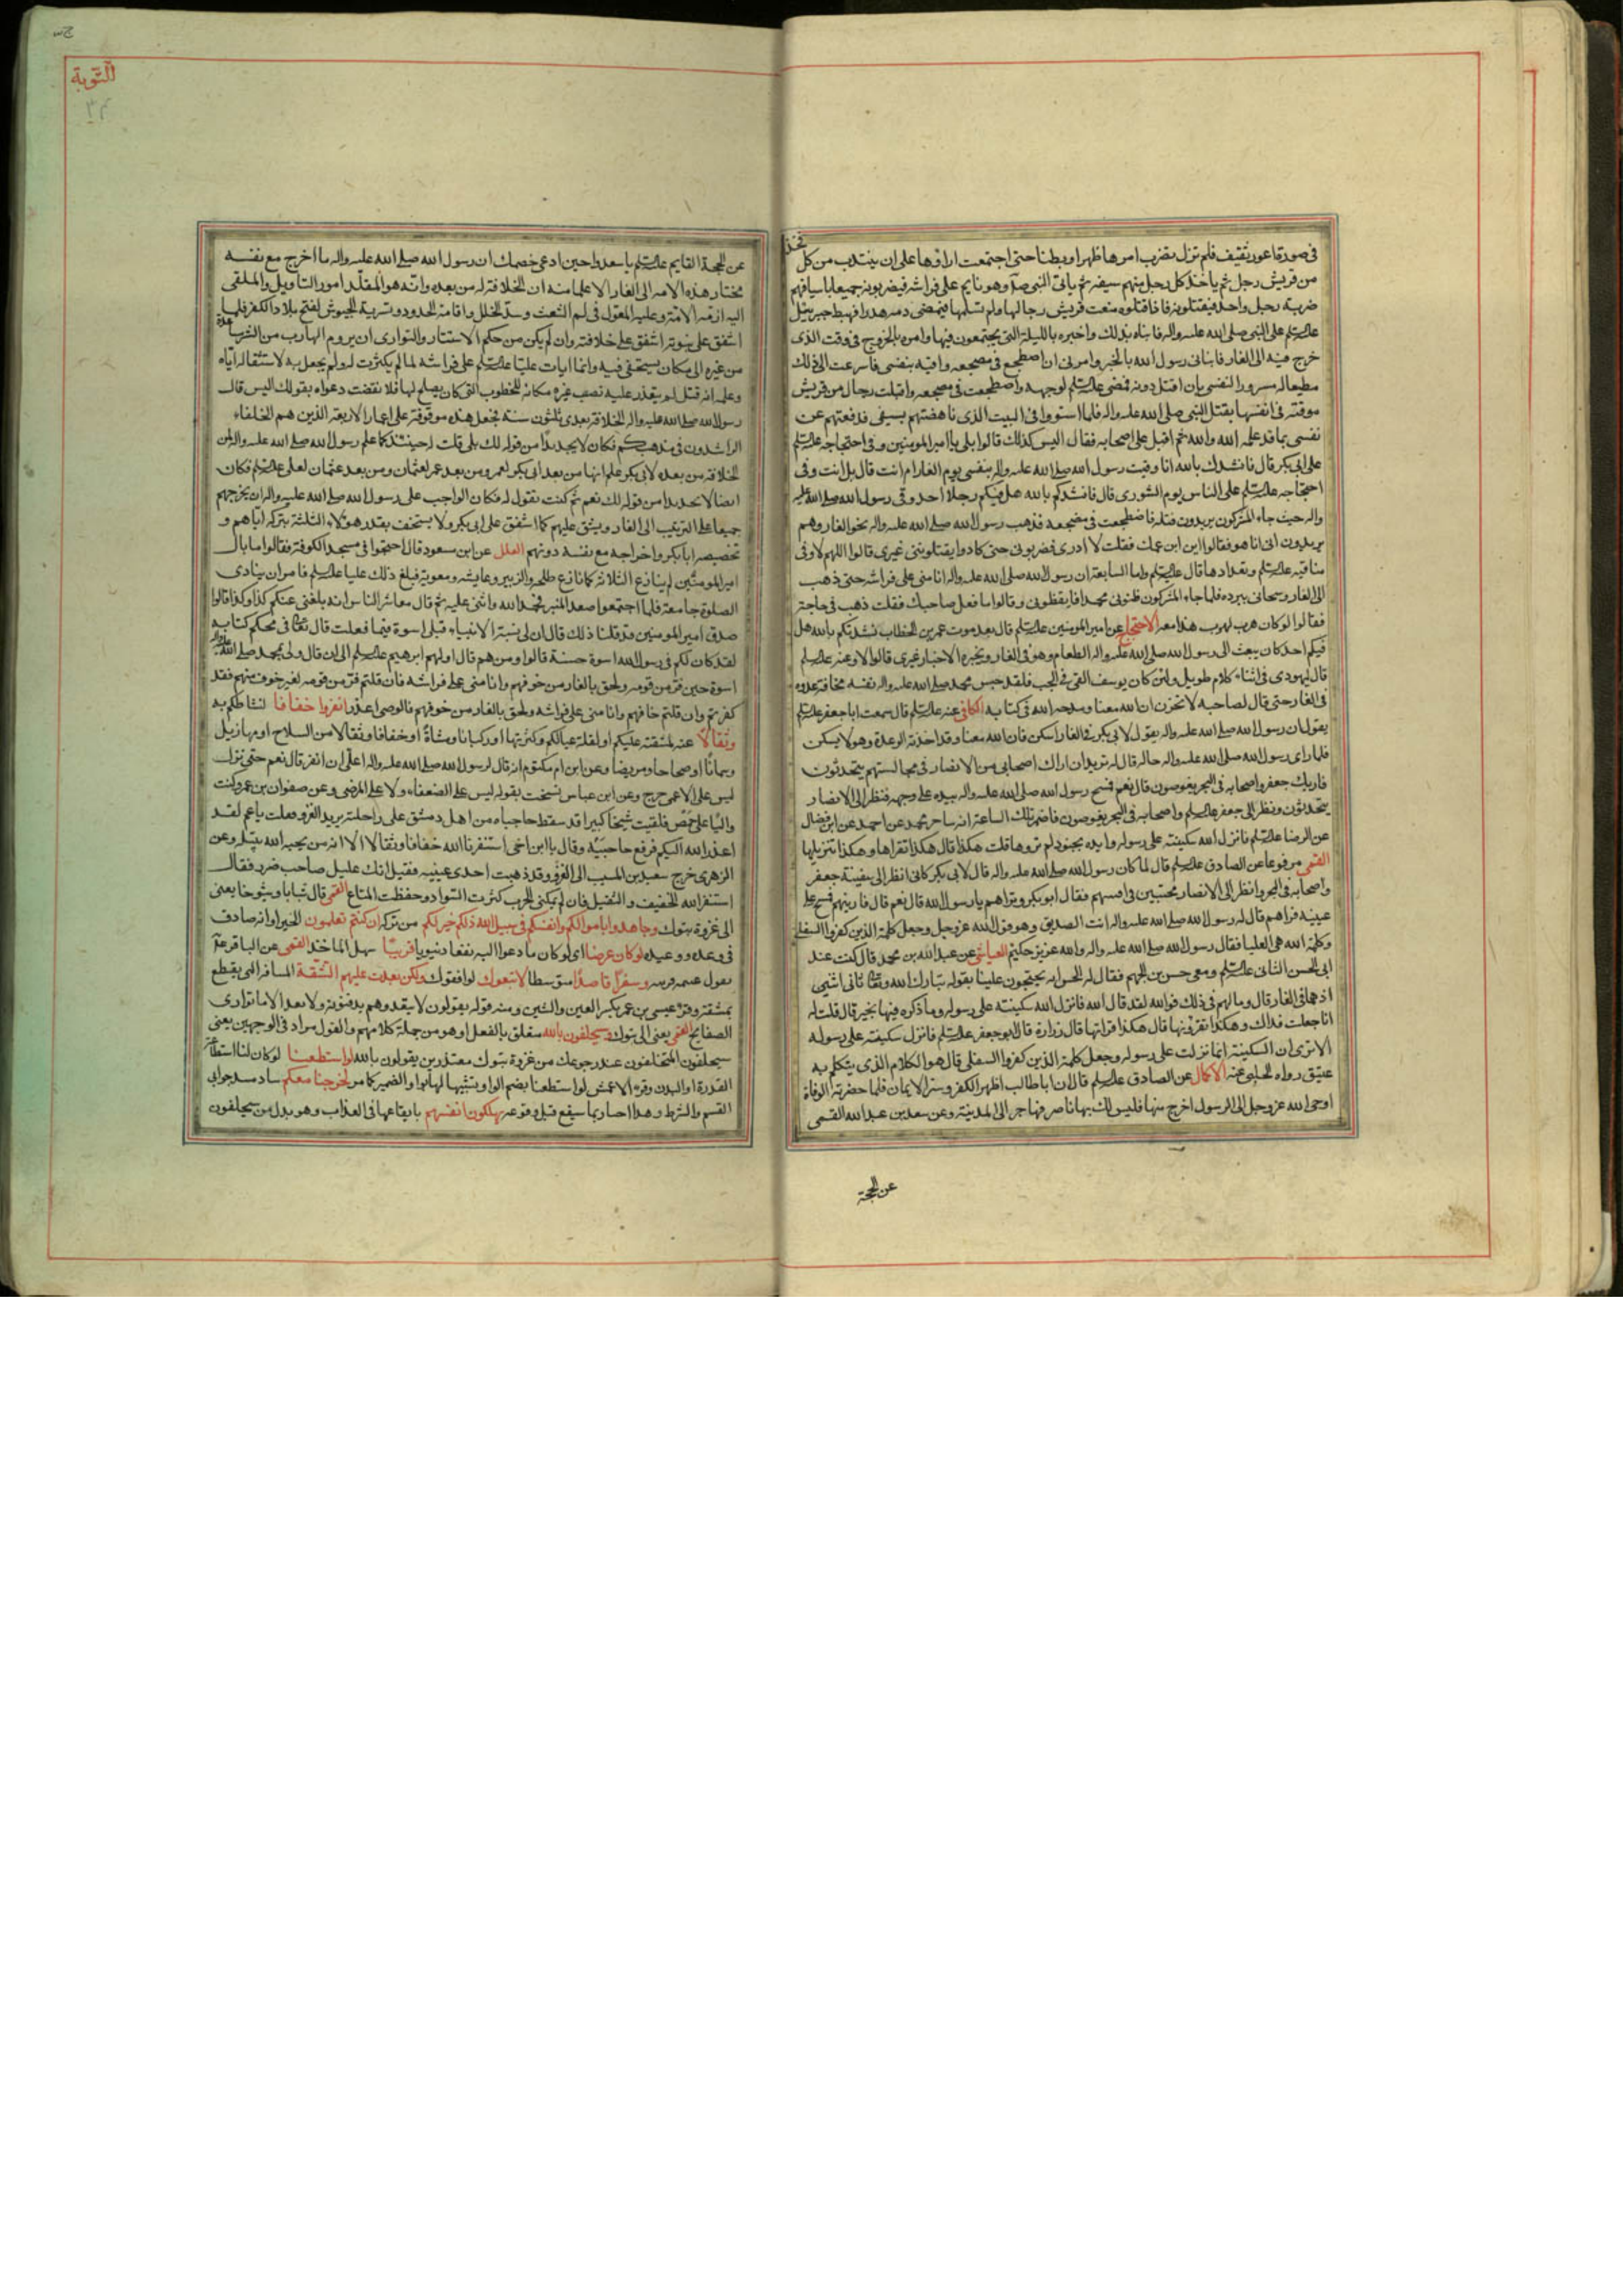 فی صورة اعور ثقیف فلم تزل تضرب امرها ظهرا وبطنا حتی اجتمعت اراؤها علی ان ینتدب من کل فخذ
من قریش رجل ثم یاخذ کل رجل منهم سیفه ثم یاتی النبی صلم وهو نایم علی فراشه فیضربونه جمیعا باسیافهم
ضربة رجل واحد فیقتلونه فاذا قتلوه منعت قریش رجالها ولم تسلمها فیمضی دمه هدرا فهبط جبرئیل
علیه السلم علی النبی صلی الله علیه واله فانباه بذلک واخبره باللیلة التی یجتمعون فیها وامره بالخروج فی وقت الذی
خرج فیه الی الغار فانبانی رسول الله بالخبر وامرنی ان اضطجع فی مضجعه واقیه بنفسی فاسرعت الی ذلک
مطیعا له مسرورا لنفسی بان اقتل دونه فمضی علیه السلم لوجهه واضطجعت فی مضجعه واقبلت رجال من قریش
موقنة فی انفسها بقتل النبی صلی الله علیه واله فلما استووا فی البیت الذی ناهضتهم بسیفی فدفعتهم عن
نفسی بما قد علمه الله والناس ثم اقبل علی اصحابه فقال الیس کذلک قالوا بلی یا امیر المومنین وفی احتجاجه علیه السلم
علی ابی بکر قال فانشدک بالله انا وقیت رسول الله صلی الله علیه واله بنفسی یوم الغار ام انت قال بل انت وفی
احتجاجه علیه السلم علی الناس یوم الشوری قال فانشدکم بالله هل فیکم رجلا احد وقی رسول الله صلی الله علیه
واله حیث جاء المشرکون یریدون قتله فاضطجعت فی مضجعه فذهب رسول الله صلی الله علیه واله نحو الغار وهم
یریدون انی انا هو فقالوا این ابن عمک فقلت لا ادری فضربونی حتی کادوا یقتلوننی غیری قالوا اللهم لا وفی
مناقبه علیه السلم وتعدادها قال علیه السلم واما السابعة ان رسول الله صلی الله علیه واله انامنی علی فراشه حتی ذهب
الی الغار وسجانی ببرده فلما جاء المشرکون ظنونی محمدا فایقظونی وقالوا ما فعل صاحبک فقلت ذهب فی حاجته
فقالوا لو کان هرب لهرب هذا معه الاحتجاج عن امیر المومنین علیه السلم قال بعد موت عمر بن الخطاب نشدتکم بالله هل
فیکم احد کان یبعث الی رسول الله صلی الله علیه واله الطعام وهو فی الغار ویخبره الاخبار غیری قالوا لا وعنه علیه السلم
قال لیهودی فی اثناء کلام طویل ولئن کان یوسف القی فی الجب فلقد حبس محمد صلی الله علیه واله نفسه مخافة عدوه
فی الغار حتی قال لصاحبه لا تحزن ان الله معنا ومدحه الله فی کتابه الکافی عنه علیه السلم قال سمعت ابا جعفر علیه السلم
یقول ان رسول الله صلی الله علیه واله یقول لابی بکر فی الغار اسکن فان الله معنا وقد اخذته الرعدة وهو لا یسکن
فلما رای رسول الله صلی الله علیه واله حاله قال له ترید ان اراک اصحابی من الانصار فی مجالستهم یتحدثون
فاریک جعفر واصحابه فی البحر یغوصون قال نعم فمسح رسول الله صلی الله علیه واله بیده علی وجهه فنظر الی الانصار
یتحدثون ونظر الی جعفر علیه السلم واصحابه فی البحر یغوصون فاضمر تلک الساعة انه ساحر محمد عن احمد عن ابن فضال
عن الرضا علیه السلم فانزل الله سکینته علی رسوله وایده بجنود لم تروها قلت هکذا قال هکذا نقراها وهکذا تنزیلها
القمی مرفوعا عن الصادق علیه السلم قال لما کان رسول الله صلی الله علیه واله قال لابی بکر کانی انظر الی سفینة جعفر
واصحابه فی البحر وانظر الی الانصار محتبین فی افنیتهم فقال ابو بکر وتراهم یا رسول الله قال نعم قال فارنیهم فمسح علی
عینیه فراهم قال له رسول الله صلی الله علیه واله انت الصدیق وهو قول الله عز وجل وجعل کلمة الذین کفروا السفلی
وکلمة الله هی العلیا فقال رسول الله صلی الله علیه واله والله عزیز حکیم العیاشی عن عبد الله بن محمد قال کنت عند
ابی الحسن الثانی علیه السلم ومعی حسن بن الجهم فقال له الحسن انه یحتجون علینا بقوله تبارک الله وتعالی ثانی اثنین
اذ هما فی الغار قال وما لهم فی ذلک فوالله لقد قال الله فانزل الله سکینته علی رسوله وما ذکره فیها بخیر قال قلت له
انا جعلت فداک وهکذا تقرؤنها قال هکذا قراتها قال زرارة قال ابو جعفر علیه السلم فانزل سکینته علی رسوله
الا تری ان السکینة انما نزلت علی رسوله وجعل کلمة الذین کفروا السفلی قال هو الکلام الذی یتکلم به
عتیق رواه الحلبی عنه الاکمال عن الصادق علیه السلم قال ان ابا طالب اظهر الکفر وستر الایمان فلما حضرته الوفاة
اوحی الله عز وجل الی الرسول اخرج منها فلیس لک بها ناصر فهاجر الی المدینة وعن سعد بن عبد الله القمی
عن الحجة
التوبة
عن الحجة القایم علیه السلم یا سعد وحین ادعی خصمک ان رسول الله صلی الله علیه واله ما اخرج مع نفسه
مختار هذه الامة الی الغار الا علما منه ان الخلافة له من بعده وانه هو المقلد امور التاویل والملقی
الیه ازمة الامة وعلیه المعول فی لم الشعث وسد الخلل واقامة الحدود وتسریة الجیوش لفتح بلاد الکفر فلما
اشفق علی نبوته اشفق علی خلافته وان لم یکن من حکم الاستتار والتواری ان یروم الهارب من الشر مساعدة
من غیره الی مکان یستخفی فیه وانما ابات علیا علیه السلم علی فراشه لما لم یکترث له ولم یحفل به لاستثقاله ایاه
وعلمه انه قتل لم یتعذر علیه نصب غیره مکانه للخطوب التی کان یصلح لها فلا نقضت دعواه بقولک الیس قال
رسول الله صلی الله علیه واله الخلافة بعدی ثلثون سنة فجعل هذه موقوفة علی اعمار الاربعة الذین هم الخلفاء
الراشدون فی مذهبکم فکان لا یجد بدا من قوله لک بلی قلت له حینئذ کما علم رسول الله صلی الله علیه واله ان
الخلافة من بعده لابی بکر علم انها من بعد ابی بکر لعمر ومن بعد عمر لعثمان ومن بعد عثمان لعلی علیه السلم فکان
ایضا لا یجد بدا من قوله لک نعم ثم کنت تقول له فکان الواجب علی رسول الله صلی الله علیه واله ان یخرجهم
جمیعا علی الترتیب الی الغار ویشفق علیهم کما اشفق علی ابی بکر ولا یستخف بقدر هولاء الثلثة بترکه ایاهم و
تخصیصه ابا بکر واخراجه مع نفسه دونهم العلل عن ابن مسعود قال احتجوا فی مسجد الکوفة فقالوا ما بال
امیر المومنین لم ینازع الثلاثة کما نازع طلحة والزبیر وعایشه ومعویة فبلغ ذلک علیا علیه السلم فامر ان ینادی
الصلوة جامعة فلما اجتمعوا صعد المنبر فحمد الله واثنی علیه ثم قال معاشر الناس انه بلغنی عنکم کذا وکذا قالوا
صدق امیر المومنین قد قلنا ذلک قال ان لی بسنة الانبیاء قبلی اسوة فیما فعلت قال تعالی فی محکم کتابه
لقد کان لکم فی رسول الله اسوة حسنة قالوا ومن هم قال اولهم ابرهیم علیه السلم الی ان قال ولی بمحمد صلی الله علیه واله
اسوة حین فر من قومه ولحق بالغار من خوفهم وانامنی علی فراشه فان قلتم فر من قومه لغیر خوف منهم فقد
کفرتم وان قلتم خافهم وانامنی علی فراشه ولحق بالغار من خوفهم فالوصی اعذر انفروا خفافا لنشاطکم به
وثقالا عنه لمشقته علیکم او لقلة عیالکم وکثرتها او رکبانا ومشاة او خفافا وثقالا من السلاح او مهازیل
وسمانا او صحاحا ومریضا وعن ابن ام مکتوم انه قال لرسول الله صلی الله علیه واله اعلی ان انفر قال نعم حتی نزل
لیس علی الاعمی حرج وعن ابن عباس نسخت بقوله لیس علی الضعفاء ولا علی المرضی وعن صفوان بن عمرو کنت
والیا علی حمص فلقیت شیخا کبیرا قد سقط حاجباه من اهل دمشق علی راحلته یرید الغزو فقلت یا عم لقد
اعذر الله الیکم فرفع حاجبیه وقال یا ابن اخی استنفرنا الله خفافا وثقالا الا انه من یحبه الله یبتله وعن
الزهری خرج سعید بن المسیب الی الغزو وقد ذهبت احدی عینیه فقیل انک علیل صاحب ضرر فقال
استنفر الله الخفیف والثقیل فان لم یمکنی الحرب کثرت السواد وحفظت المتاع القمی قال شبابا وشیوخا یعنی
الی غزوة تبوک وجاهدوا باموالکم وانفسکم فی سبیل الله ذلکم خیر لکم من ترکه ان کنتم تعلمون الخیر او انه صادق
فی وعده ووعیده لو کان عرضا ای لو کان ما دعوا الیه نفعا دنیویا قریبا سهل الماخذ القمی عن الباقر علیه السلم
یقول غنیمة قریبة وسفرا قاصدا متوسطا لاتبعوک لوافقوک ولکن بعدت علیهم الشقة المسافة التی یقطع
بمشقة وقرء عیسی بن عمر بکسر العین والشین ومنه قوله یقولون لا یبعد وهم یدفنونه ولا بعد الا ما تواری
الصفایح القمی یعنی الی تبوک وسیحلفون بالله متعلق بالفعل او هو من جملة کلامهم والقول مراد فی الوجهین یعنی
سیحلفون المتخلفون عند رجوعک من غزوة تبوک معتذرین یقولون بالله لو استطعنا لو کان لنا استطاعة
القدرة او البدن وقرء الاعمش لو استطعنا بضم الواو تشبیها لها بواو الضمیر کما من لخرجنا معکم ساد مسد جوابی
القسم والشرط وهذا اخبار بما سیقع قبل وقوعه یهلکون انفسهم بایقاعها فی العذاب وهو بدل من سیحلفون